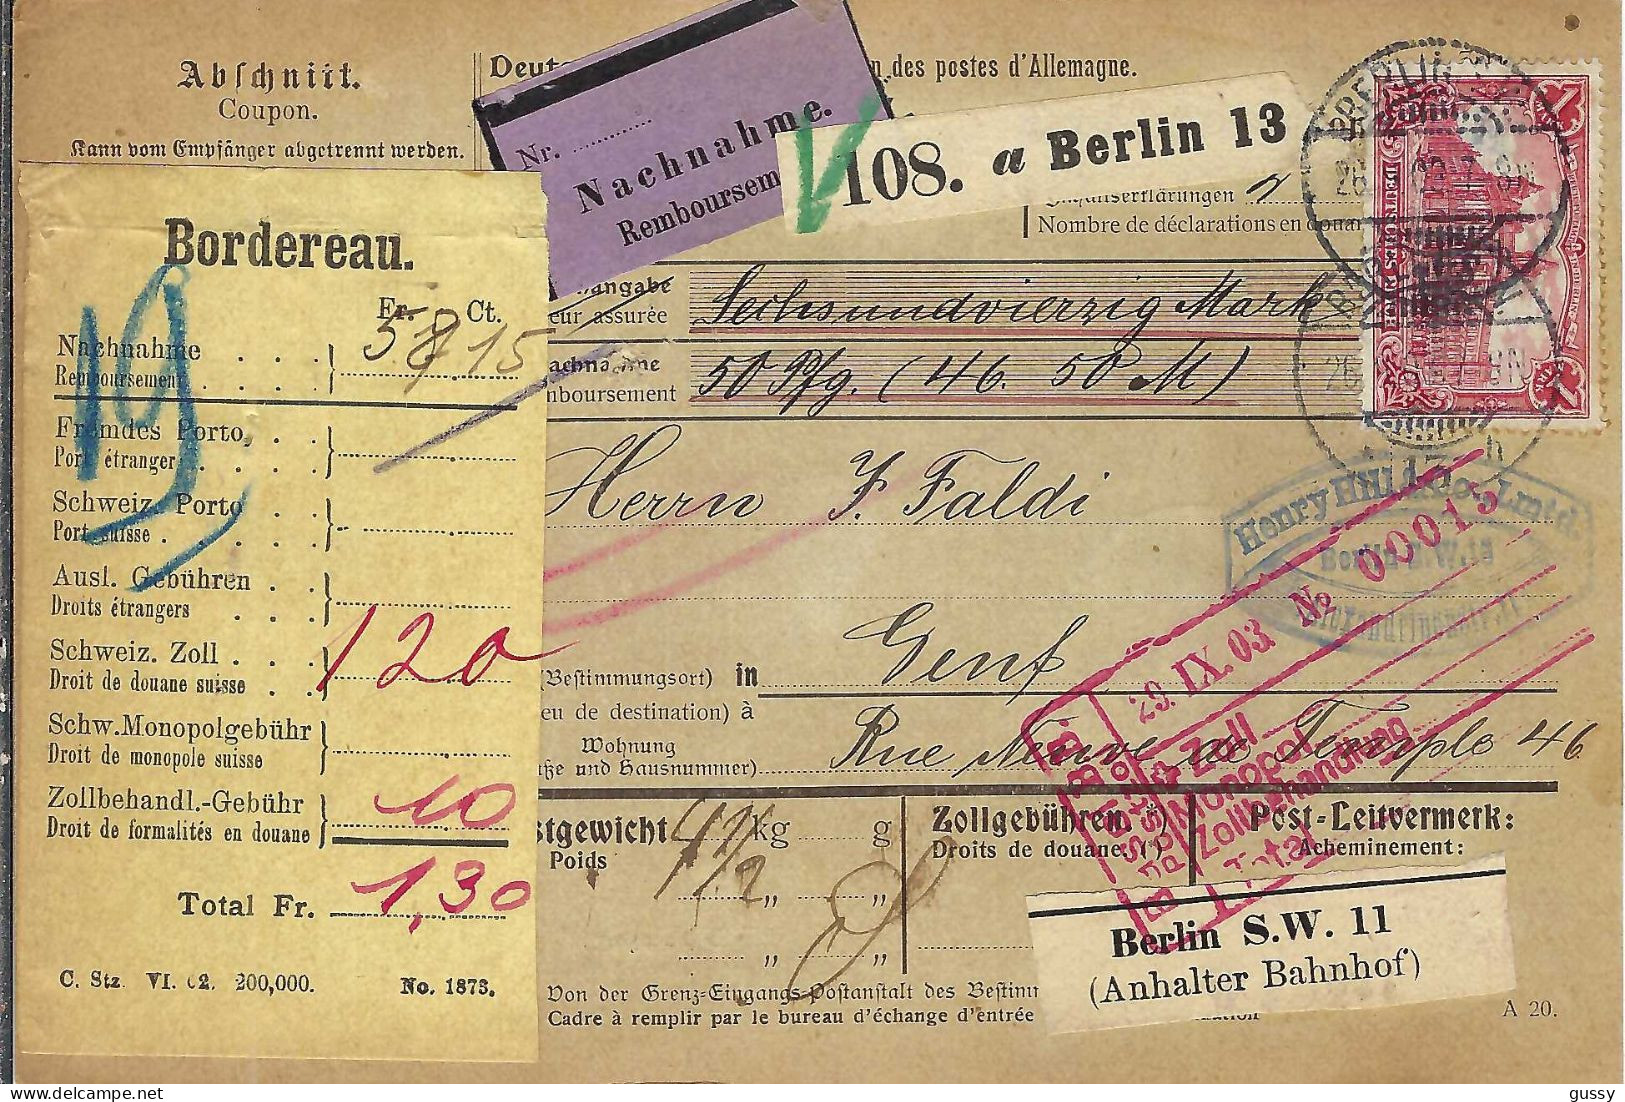 Abschnitt.
Coupon.
Kann vom Empfänger abgetrennt werden.
n des postes d'Allemagne.
Nr.
Nachnahme.
Remboursem
108. a Berlin 13
Nombre de déclarations en douan
angabe
eur assurée
Sechsundvierzig Mark
achnahme
mboursement
50 Pfg. (46. 50 M)
Herrn J. Faldi
(Bestimmungsort) in
eu de destination) à
Genf
Wohnung
ße und Hausnummer)
Rue Neuve de Temple 46
BERLIN
Berlin S.W.13
29. IX. 03 № 00013
Zoll
Monopol
Zollbehandlung
Total
stgewicht
Poids
kg g
Zollgebühren. *)
Droits de douane. ( )
Post-Leitvermerk:
Acheminement:
Berlin S.W. 11
(Anhalter Bahnhof)
Von der Grenz-Eingangs-Postanstalt des Bestim
Cadre à remplir par le bureau d'échange d'entrée
A 20.
Bordereau.
Fr. Ct.
Nachnahme
Remboursement
15
Fremdes Porto
Port étranger
Schweiz. Porto
Port suisse
Ausl. Gebühren
Droits étrangers
Schweiz. Zoll
Droit de douane suisse
120
Schw. Monopolgebühr
Droit de monopole suisse
Zollbehandl.-Gebühr
Droit de formalités en douane
10
Total Fr. 1,30
C. Stz. VI. 02. 200,000. No. 1873.
gussy